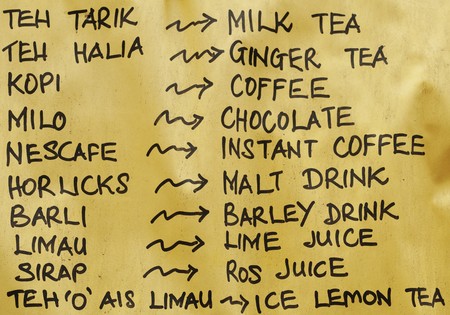 TEH TARIK → MILK TEA
TEH HALIA → GINGER TEA
KOPI → COFFEE
MILO → CHOCOLATE
NESCAFE → INSTANT COFFEE
HORLICKS → MALT DRINK
BARLI → BARLEY DRINK
LIMAU → LIME JUICE
SIRAP → ROS JUICE
TEH 'O' AIS LIMAU → ICE LEMON TEA